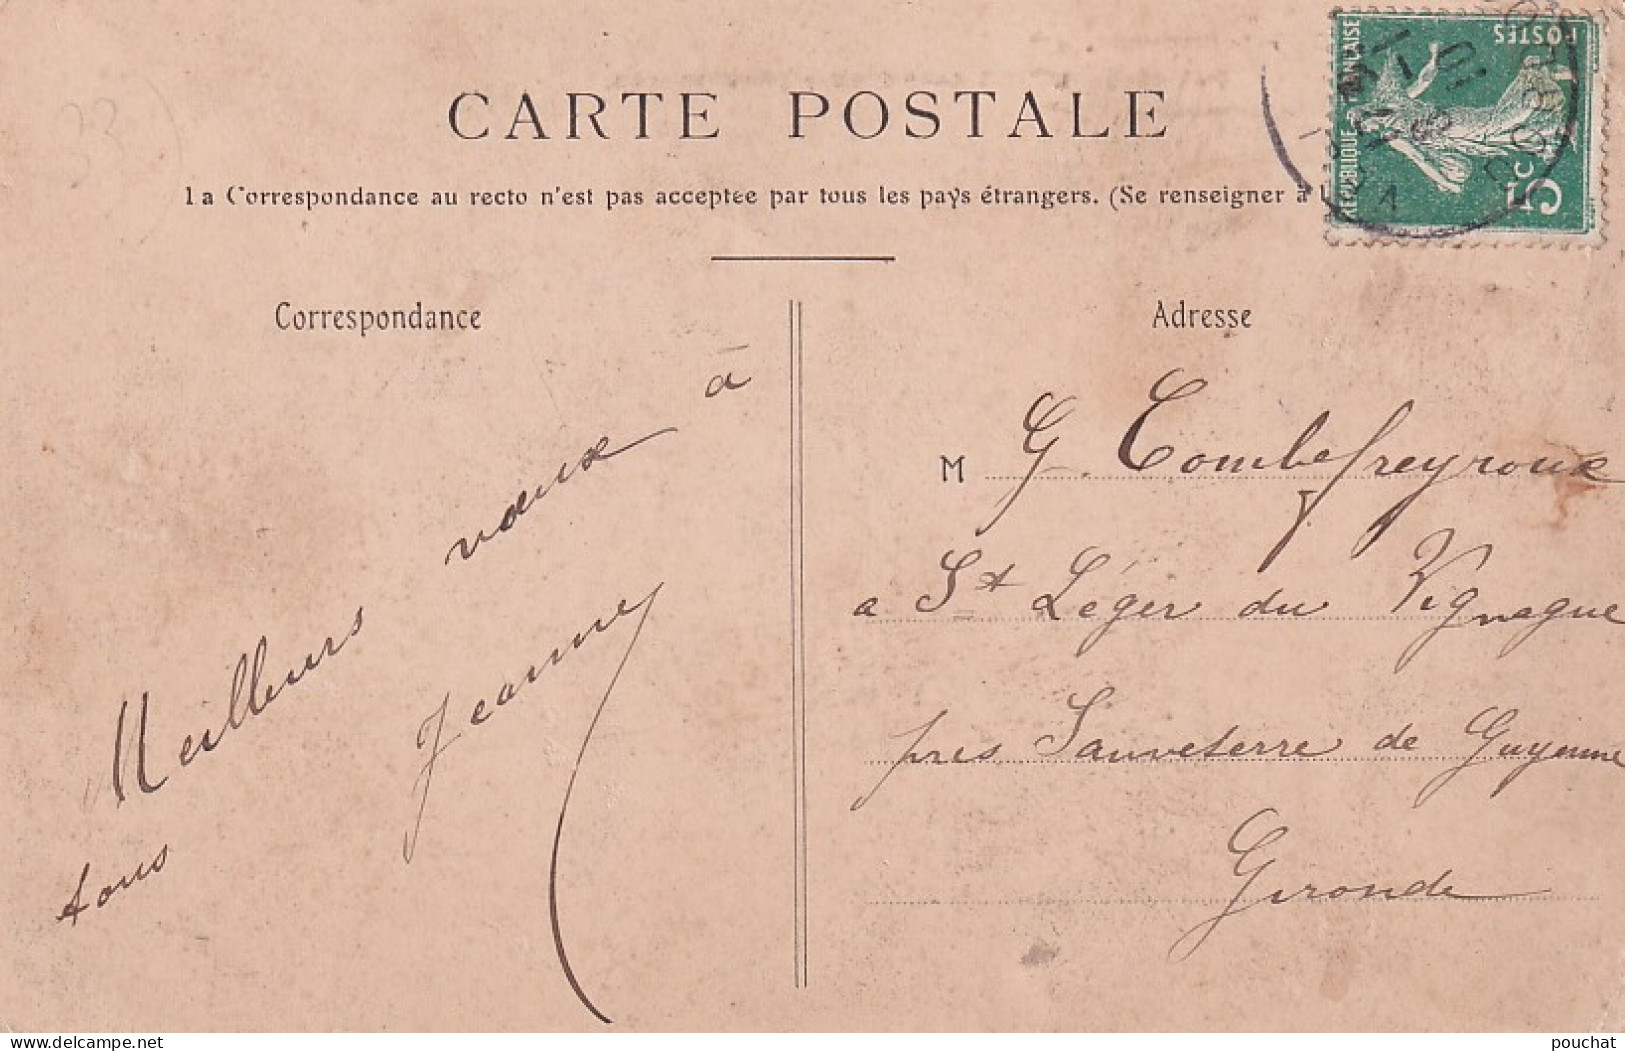 33
CARTE POSTALE
La Correspondance au recto n'est pas acceptée par tous les pays étrangers. (Se renseigner à
RÉPUBLIQUE FRANÇAISE
POSTES
5c
Correspondance
Meilleurs vœux à
tous
Jeanne
Adresse
M G. Combefreyroux
a St Léger du Vignague
près Sauveterre de Guyenne
Gironde
delcampe.net
pouchat